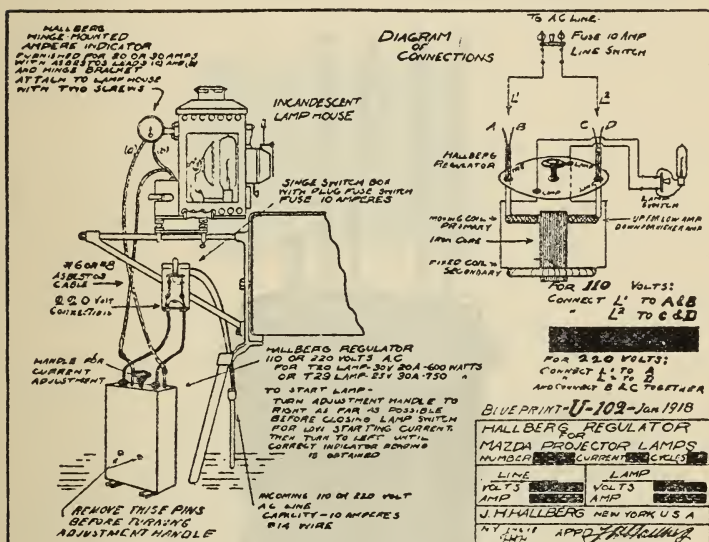 HALLBERG
HINGE-MOUNTED
AMPERE INDICATOR
FURNISHED FOR 20 OR 30 AMPS
WITH ASBESTOS LEADS
AND HINGE BRACKET
ATTACH TO LAMP HOUSE
WITH TWO SCREWS
INCANDESCENT
LAMP HOUSE
SINGE SWITCH BOX
WITH PLUG FUSE SWITCH
FUSE 10 AMPERES
#6 OR #8
ASBESTOS
CABLE
220 VOLT
CONNECTION
HANDLE FOR
CURRENT
ADJUSTMENT
HALLBERG REGULATOR
110 OR 220 VOLTS A.C
FOR T20 LAMP-30V 20A-600 WATTS
OR T29 LAMP-25V 30A-750 "
TO START LAMP-
TURN ADJUSTMENT HANDLE TO
RIGHT AS FAR AS POSSIBLE
BEFORE CLOSING LAMP SWITCH
FOR LOW STARTING CURRENT.
THEN TURN TO LEFT UNTIL
CORRECT INDICATOR READING
IS OBTAINED
INCOMING 110 OR 220 VOLT
AC LINE
CAPACITY-10 AMPERES
#14 WIRE
REMOVE THESE PINS
BEFORE TURNING
ADJUSTMENT HANDLE
DIAGRAM
OF
CONNECTIONS
TO AC LINE
FUSE 10 AMP
LINE SWITCH
L1 L2
A B C D
HALLBERG
REGULATOR
LINE LAMP
LAMP LINE
LAMP
SWITCH
MOVING COIL
PRIMARY
IRON CORE
FIXED COIL
SECONDARY
UP FOR LOW AMP
DOWN FOR HIGHER AMP
FOR 110 VOLTS:
CONNECT L1 TO A&B
" L2 TO C&D
FOR 220 VOLTS:
CONNECT L1 TO A
" L2 TO D
AND CONNECT B & C TOGETHER
BLUEPRINT-U-102-Jan 1918
HALLBERG REGULATOR
FOR
MAZDA PROJECTOR LAMPS
NUMBER CURRENT CYCLES
LINE LAMP
VOLTS VOLTS
AMP AMP
J.H. HALLBERG NEW YORK U S A
APPD J H Hallberg